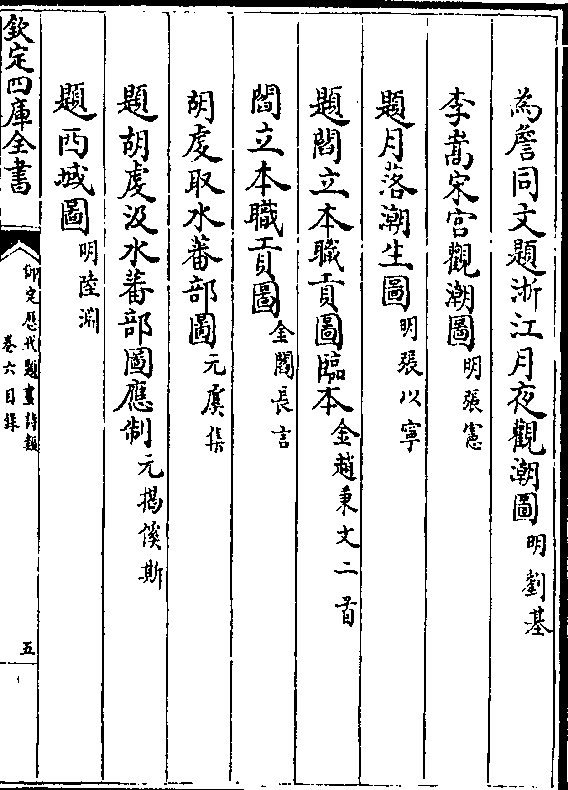 為詹同文題浙江月夜觀潮圖 明劉基
李嵩宋宫觀潮圖 明張憲
題月落潮生圖 明張以寧
題閻立本職貢圖臨本 金趙秉文二首
閻立本職貢圖 金閻長言
胡虔取水蕃部圖 元虞集
題胡虔汲水蕃部圖應制 元揭傒斯
題西域圖 明陸淵
欽定四庫全書
御定歷代題畫詩類
卷六目錄
五